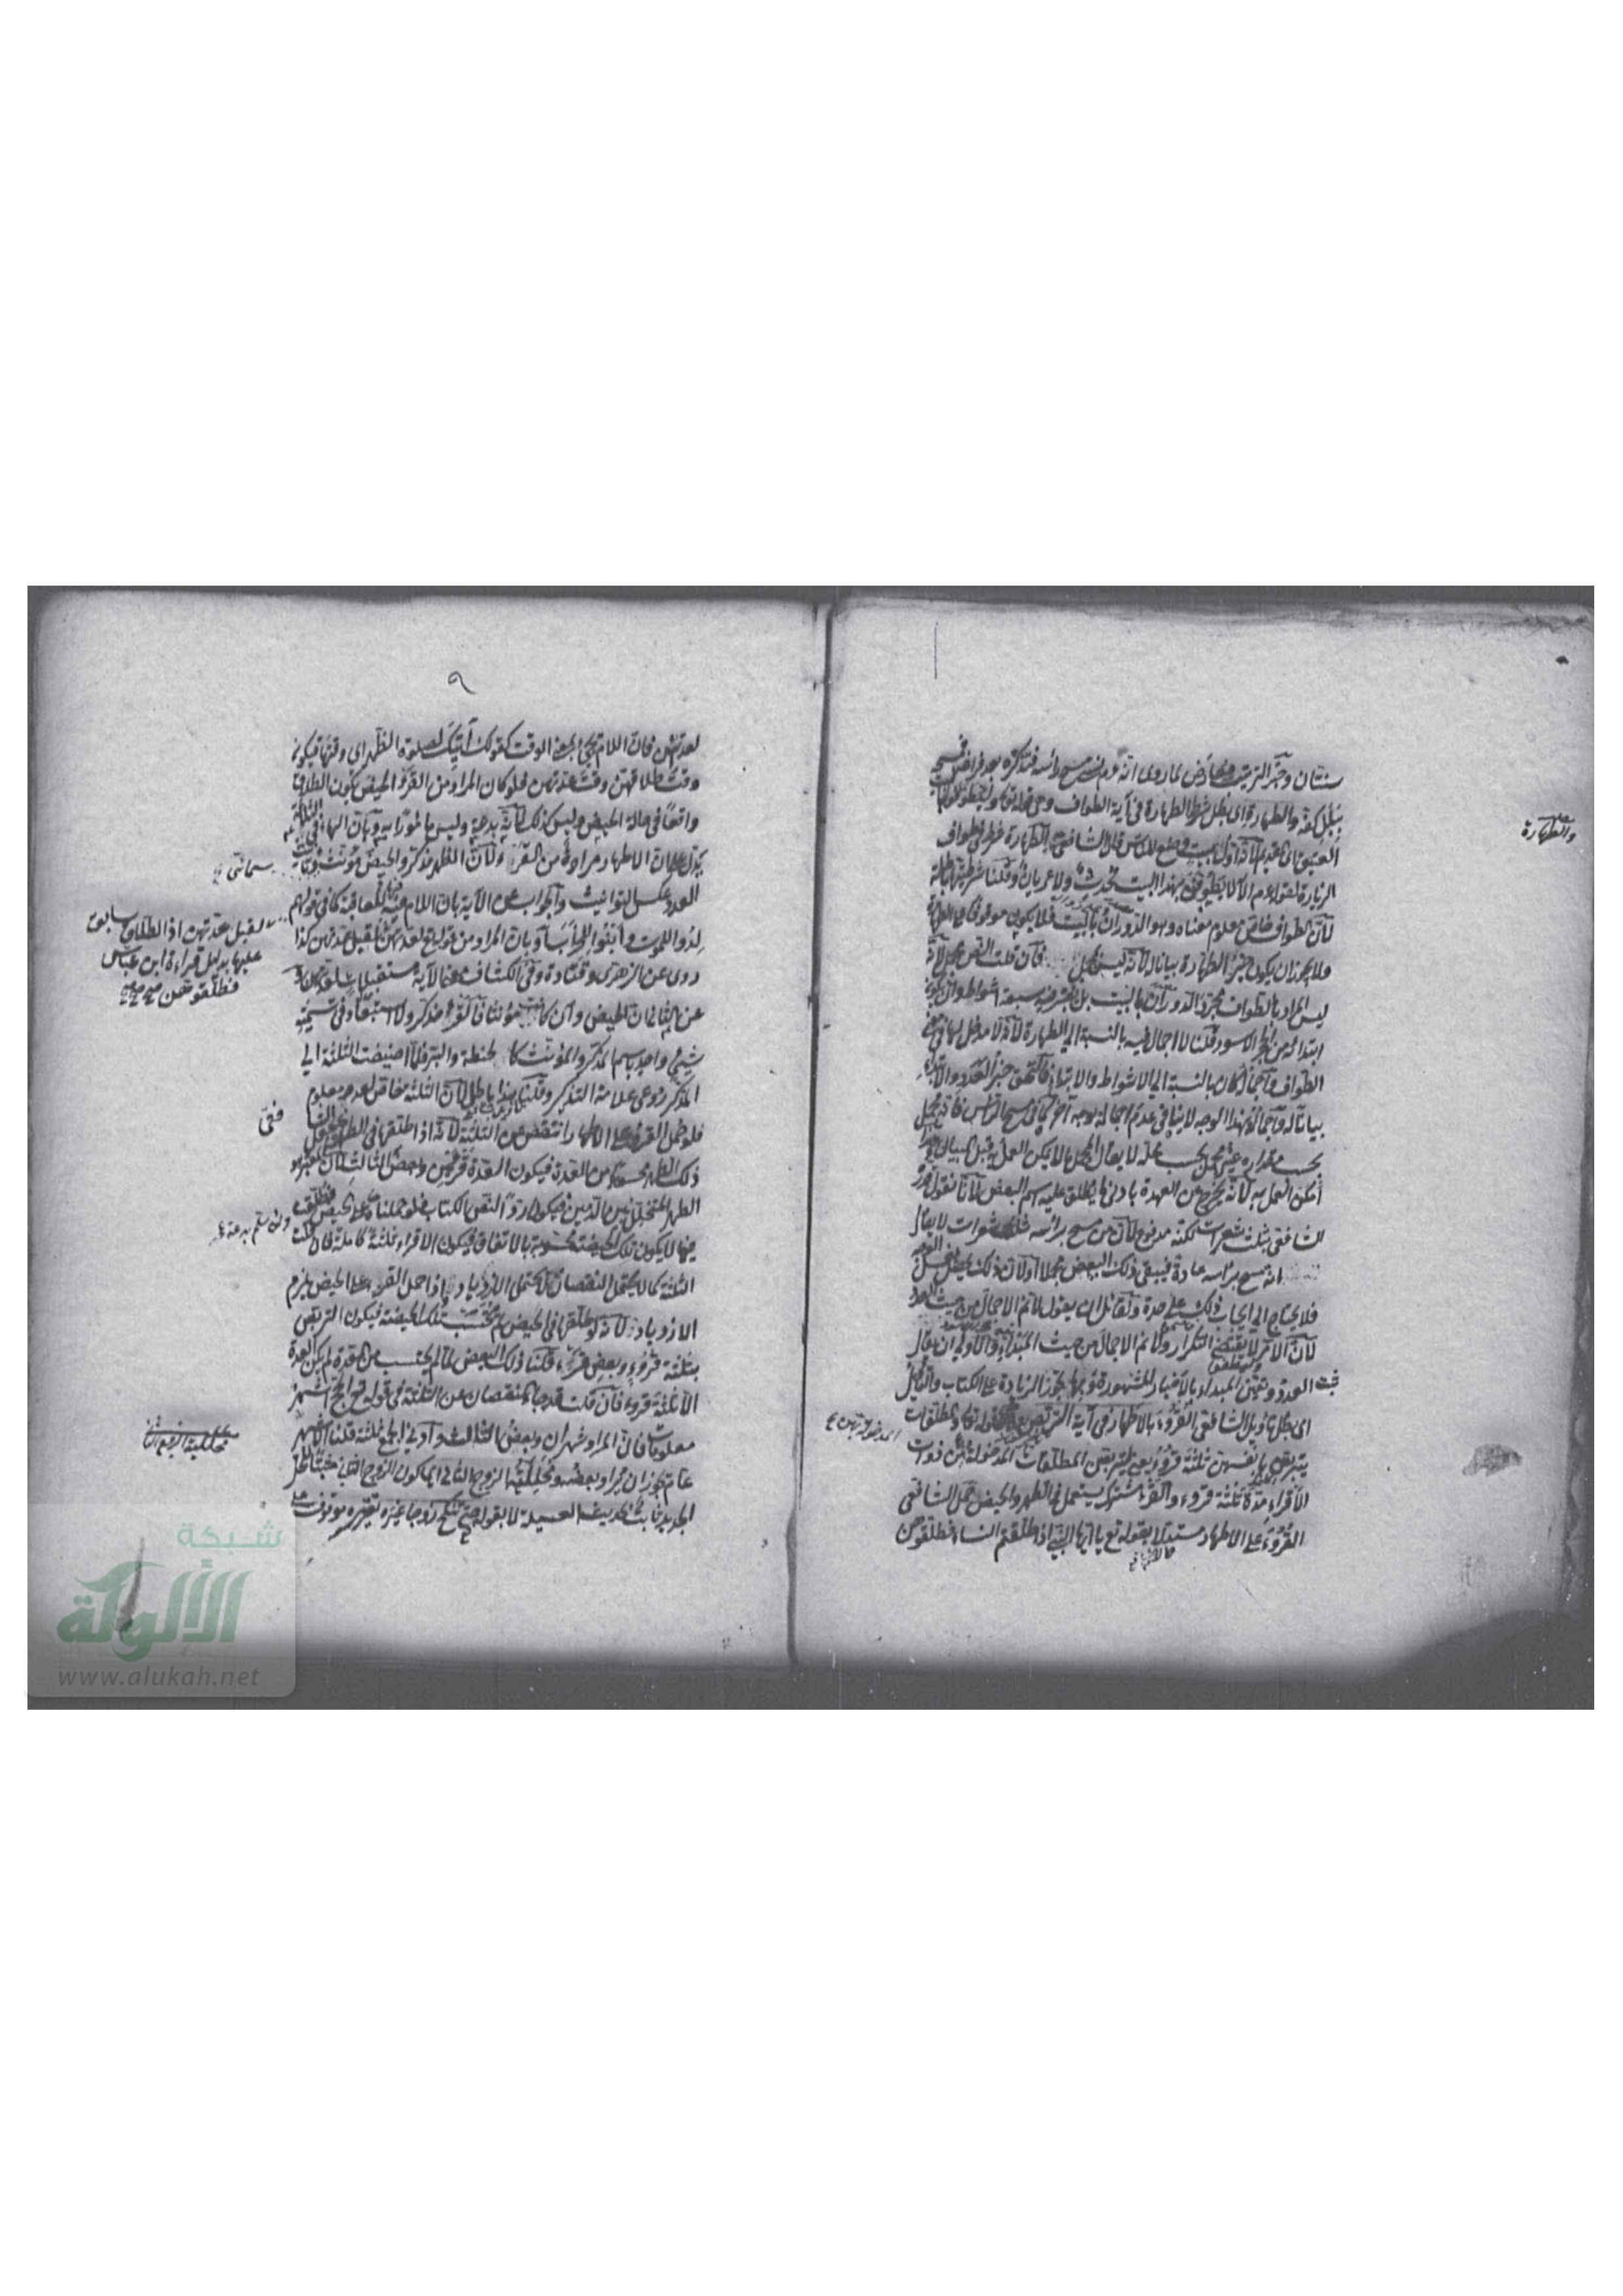 سنتان وخبر الترتيب معارض لما روى انه عم نسي مسح رأسه فتذكره بعد فراغه فمسح
ببلل كفه والطهارة اى بطل شرط الطهارة فى آية الطواف وهى قوله تعالى وليطوفوا بالبيت
العتيق اى القديم لأنه اول بيت وضع للناس قال الشافعى الطهارة شرط فى طواف
الزيارة لقوله عم ألا لا يطوفن بهذا البيت محدث ولا عريان وقلنا شرطيتها باطلة
لأن الطواف خاص معلوم معناه وهو الدوران بالبيت فلا يكون موقوفا على الطهارة
ولا يجوز ان يكون خبر الطهارة بيانا له لأنه ليس بمجمل فأن قلت النص مجمل لأنه
ليس المراد بالطواف مجرد الدوران بالبيت بل يعتبر فيه سبعة اشواط وان يكون
ابتداؤه من الحجر الاسود قلنا لا اجمال فيه بالنسبة الى الطهارة لأنه لا مدخل لها فى معنى
الطواف وأجماله كان بالنسبة الى الاشواط والابتداء فالتحق خبر العدد والابتداء
بيانا له وأجماله بهذا الوجه لا ينافى عدم اجماله بوجه آخر كما فى مسح الرأس فانه مجمل
بحسب مقداره غير مجمل بحسب محله لا يقال المجمل ما لا يمكن العمل به قبل البيان
أمكن العمل به لأنه يخرج عن العهدة بادنى ما يطلق عليه اسم البعض لأنا نقول
الشافعى بثلث شعرات لكنه مدفوع لأن من مسح برأسه ثلث شعرات لا يقال
انه مسح برأسه عادة فيبقى ذلك البعض مجملا أو لأن ذلك يحصل بغسل الوجه
فلا يحتاج الى ايجاب ذلك على حدة ولقائل ان يقول لا نم الاجمال من حيث العدد
لأن الامر لا يقتضى التكرار ولا نم الاجمال من حيث المبتدأ والأولى ان يقال
ثبت العدد وتعين المبداء بالأخبار المشهورة وبها يجوز الزيادة على الكتاب والتأويل
اى بطل تاويل الشافعى القروء بالاطهار فى آية التربص وهى قوله تعالى والمطلقات
يتربصن بانفسهن ثلثة قروء يعنى ليتربص المطلقات المدخولة بهن من ذوات
الأقراء مدة ثلثة قروء والقرء مشترك يستعمل فى الطهر والحيض حمل الشافعى
القروء على الاطهار مستدلا بقوله تع يا أيها النبى اذا طلقتم النساء فطلقوهن
والطهارة
المدخولة بهن
٩
لعدتهن فان اللام تجئ بمعنى الوقت كقولك أتيتك لصلوة الظهر اى وقتها فيكون
وقت طلاقهن وقت عدتهن فلو كان المراد من القرء الحيض يكون الطلاق
واقعا فى حالة الحيض وليس كذلك لأنه بدعى وليس مأمورا به وبأن الهاء فى الثلثة
يدل على ان الاطهار مراده من القرء لأن الطهر مذكر والحيض مؤنث
العدد عكس التوانيث والجواب عن الآية بان اللام فيه للعاقبة كما فى قولهم
لدوا للموت وأبنوا للخراب أو بان المراد من قوله تع لعدتهن لقبل عدتهن كذا
روى عن الزهرى وقتادة وفى الكشاف معنى الآية مستقبلات لعدتهن
عن الثانى ان الحيض وأن كان مؤنثا فالقرء مذكر ولا استبعاد فى تسمية
شيئ واحد باسم المذكر والمؤنث كالحنطة والبر فلما اضيفت الثلثة الى
المذكر روعى علامة التذكير وقلنا هذا باطل لأن الثلثة خاص لعدد معلوم
فلو حمل القرء على الاطهار انتقض عن الثلثة لأنه اذا طلقها فى الطهر
ذلك الطهر محسوبا من العدة فيكون العدة قرئين وبعض الثالث لأن المعتبر هو
الطهر المتخلل بين الدمين فيكون ردا لنص الكتاب فلو حملناه على الحيض فطلقت
فيها لا يكون تلك الحيضة محسوبة بالاتفاق فيكون الاقراء ثلثة كاملة فان قلت
الثلثة كما لا يحتمل النقصان لا يحتمل الازدياد واذا حمل القرء على الحيض يلزم
الازدياد لأنه لو طلقها فى الحيض لم تحتسب تلك الحيضة فيكون التربص
بثلثة قروء وبعض قرء قلنا ذلك البعض لما لم يحتسب من العدة لم يكن العدة
الا ثلثة قروء فان قلت قد جاء النقصان عن الثلثة فى قوله تع الحج اشهر
معلومات فان المراد شهران وبعض الثالث وأدنى الجمع ثلثة قلنا الأشهر
عام يجوز ان يراد بعضه ومحللية الزوج الثانى اى كون الزوج الثانى مثبتا للحل
الجديد ثابت بحديث العسيلة لا بقوله حتى تنكح زوجا غيره تقريره موقوف على
لقبل عدتهن اذ الطلاق سابق
عليها بدليل قراءة ابن عباس
فطلقوهن
ففى
ولئن سلم
محللية الزوج الثانى
شبكة
الألوكة
www.alukah.net